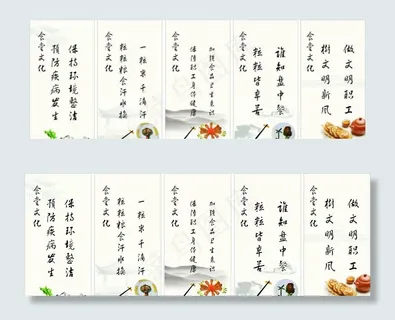 保持环境整洁
预防疾病发生
食堂文化
一粒米千滴汗
粒粒粮食汗水换
食堂文化
加强食品卫生意识
保障职工身体健康
食堂文化
谁知盘中餐
粒粒皆辛苦
食堂文化
做文明职工
樹文明新风
食堂文化
保持环境整洁
预防疾病发生
食堂文化
一粒米千滴汗
粒粒粮食汗水换
食堂文化
加强食品卫生意识
保障职工身体健康
食堂文化
谁知盘中餐
粒粒皆辛苦
食堂文化
做文明职工
樹文明新风
食堂文化